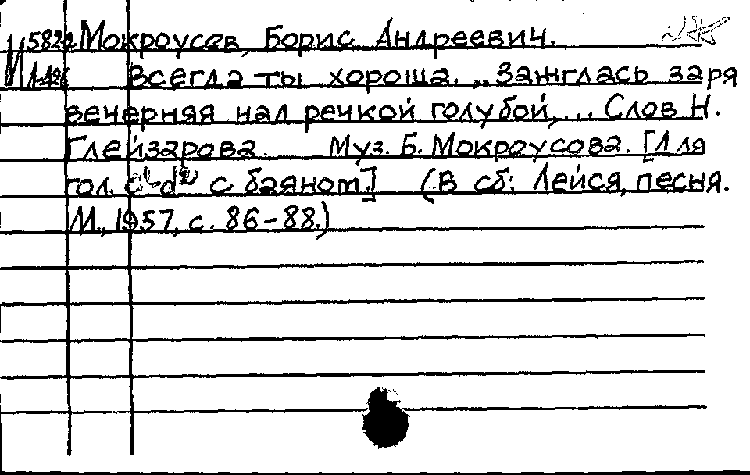 5822 Мокроусов, Борис Андреевич.
Всегда ты хороша. „Зажглась заря
вечерняя над речкой голубой,... Слов Н.
Глейзарова. Муз. Б. Мокроусова. [Для
гол. c¹-d² с баяном] (В сб: Лейся, песня.
М., 1957, с. 86-88.)